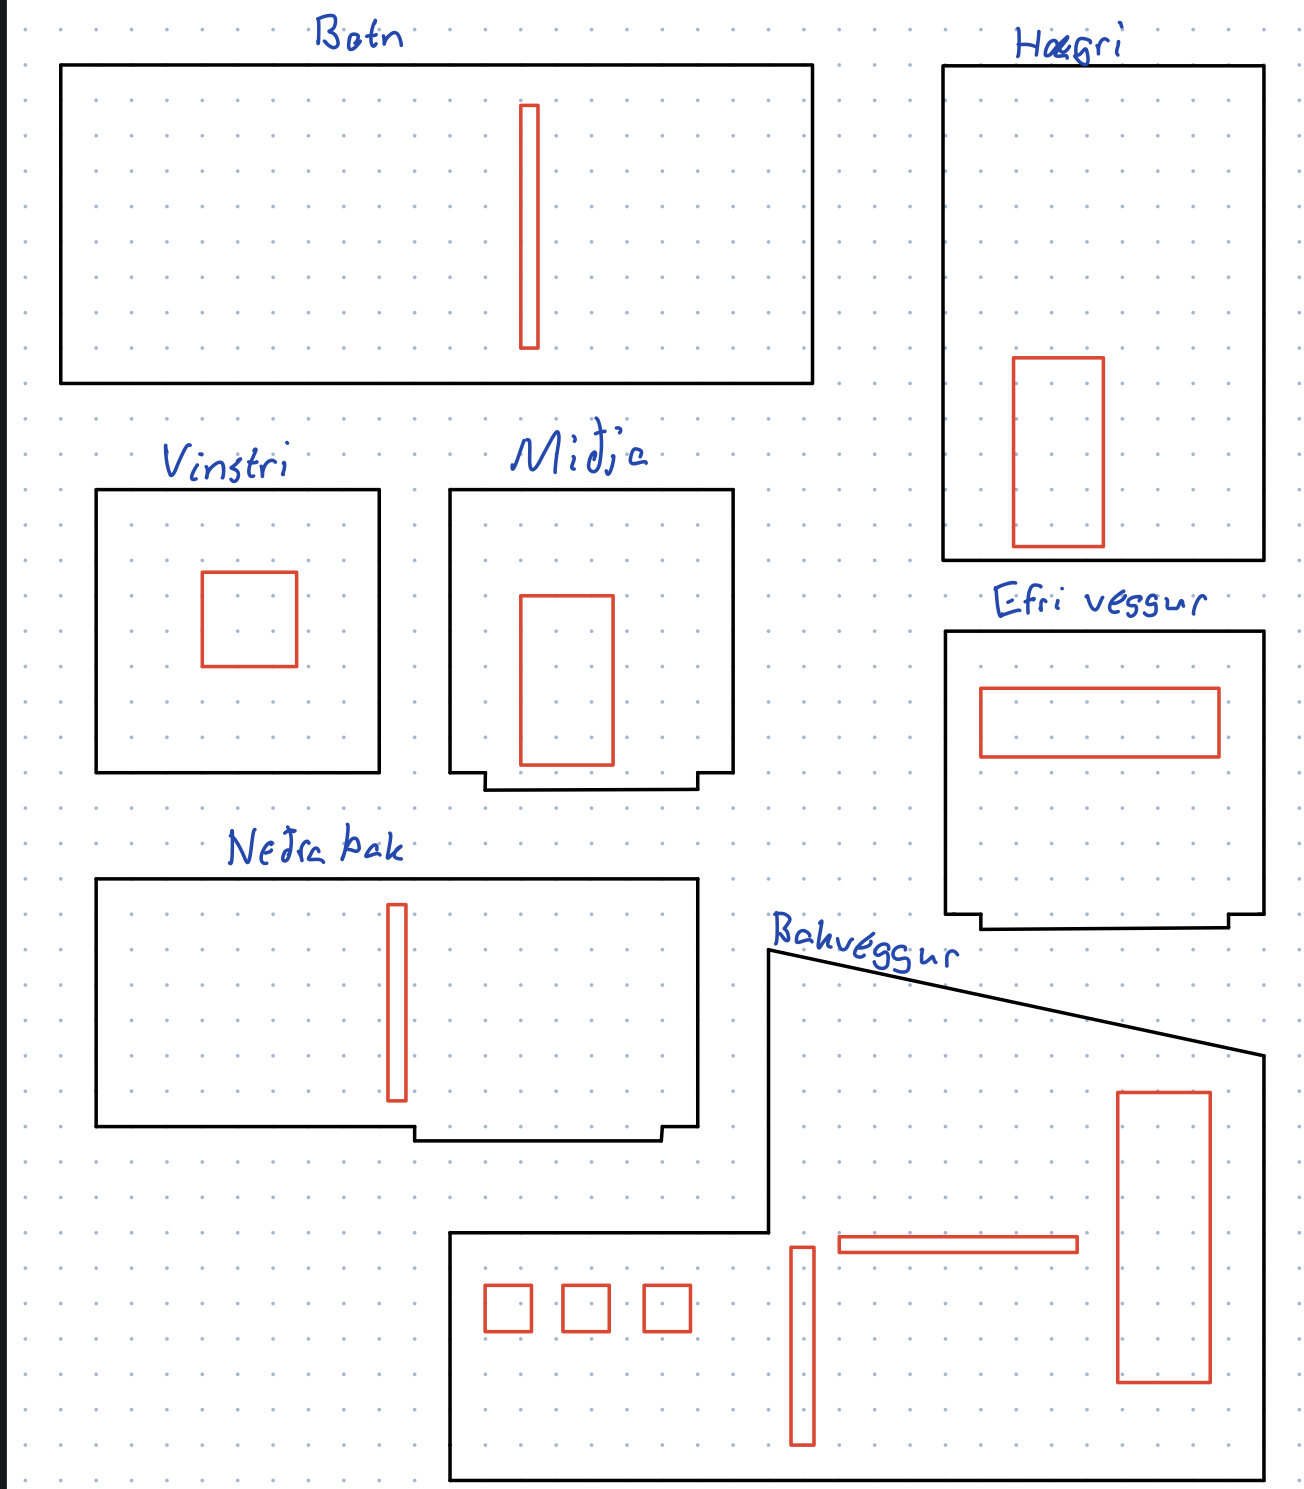 Botn
Hægri
Vinstri
Miðja
Efri veggur
Neðra bak
Bakveggur